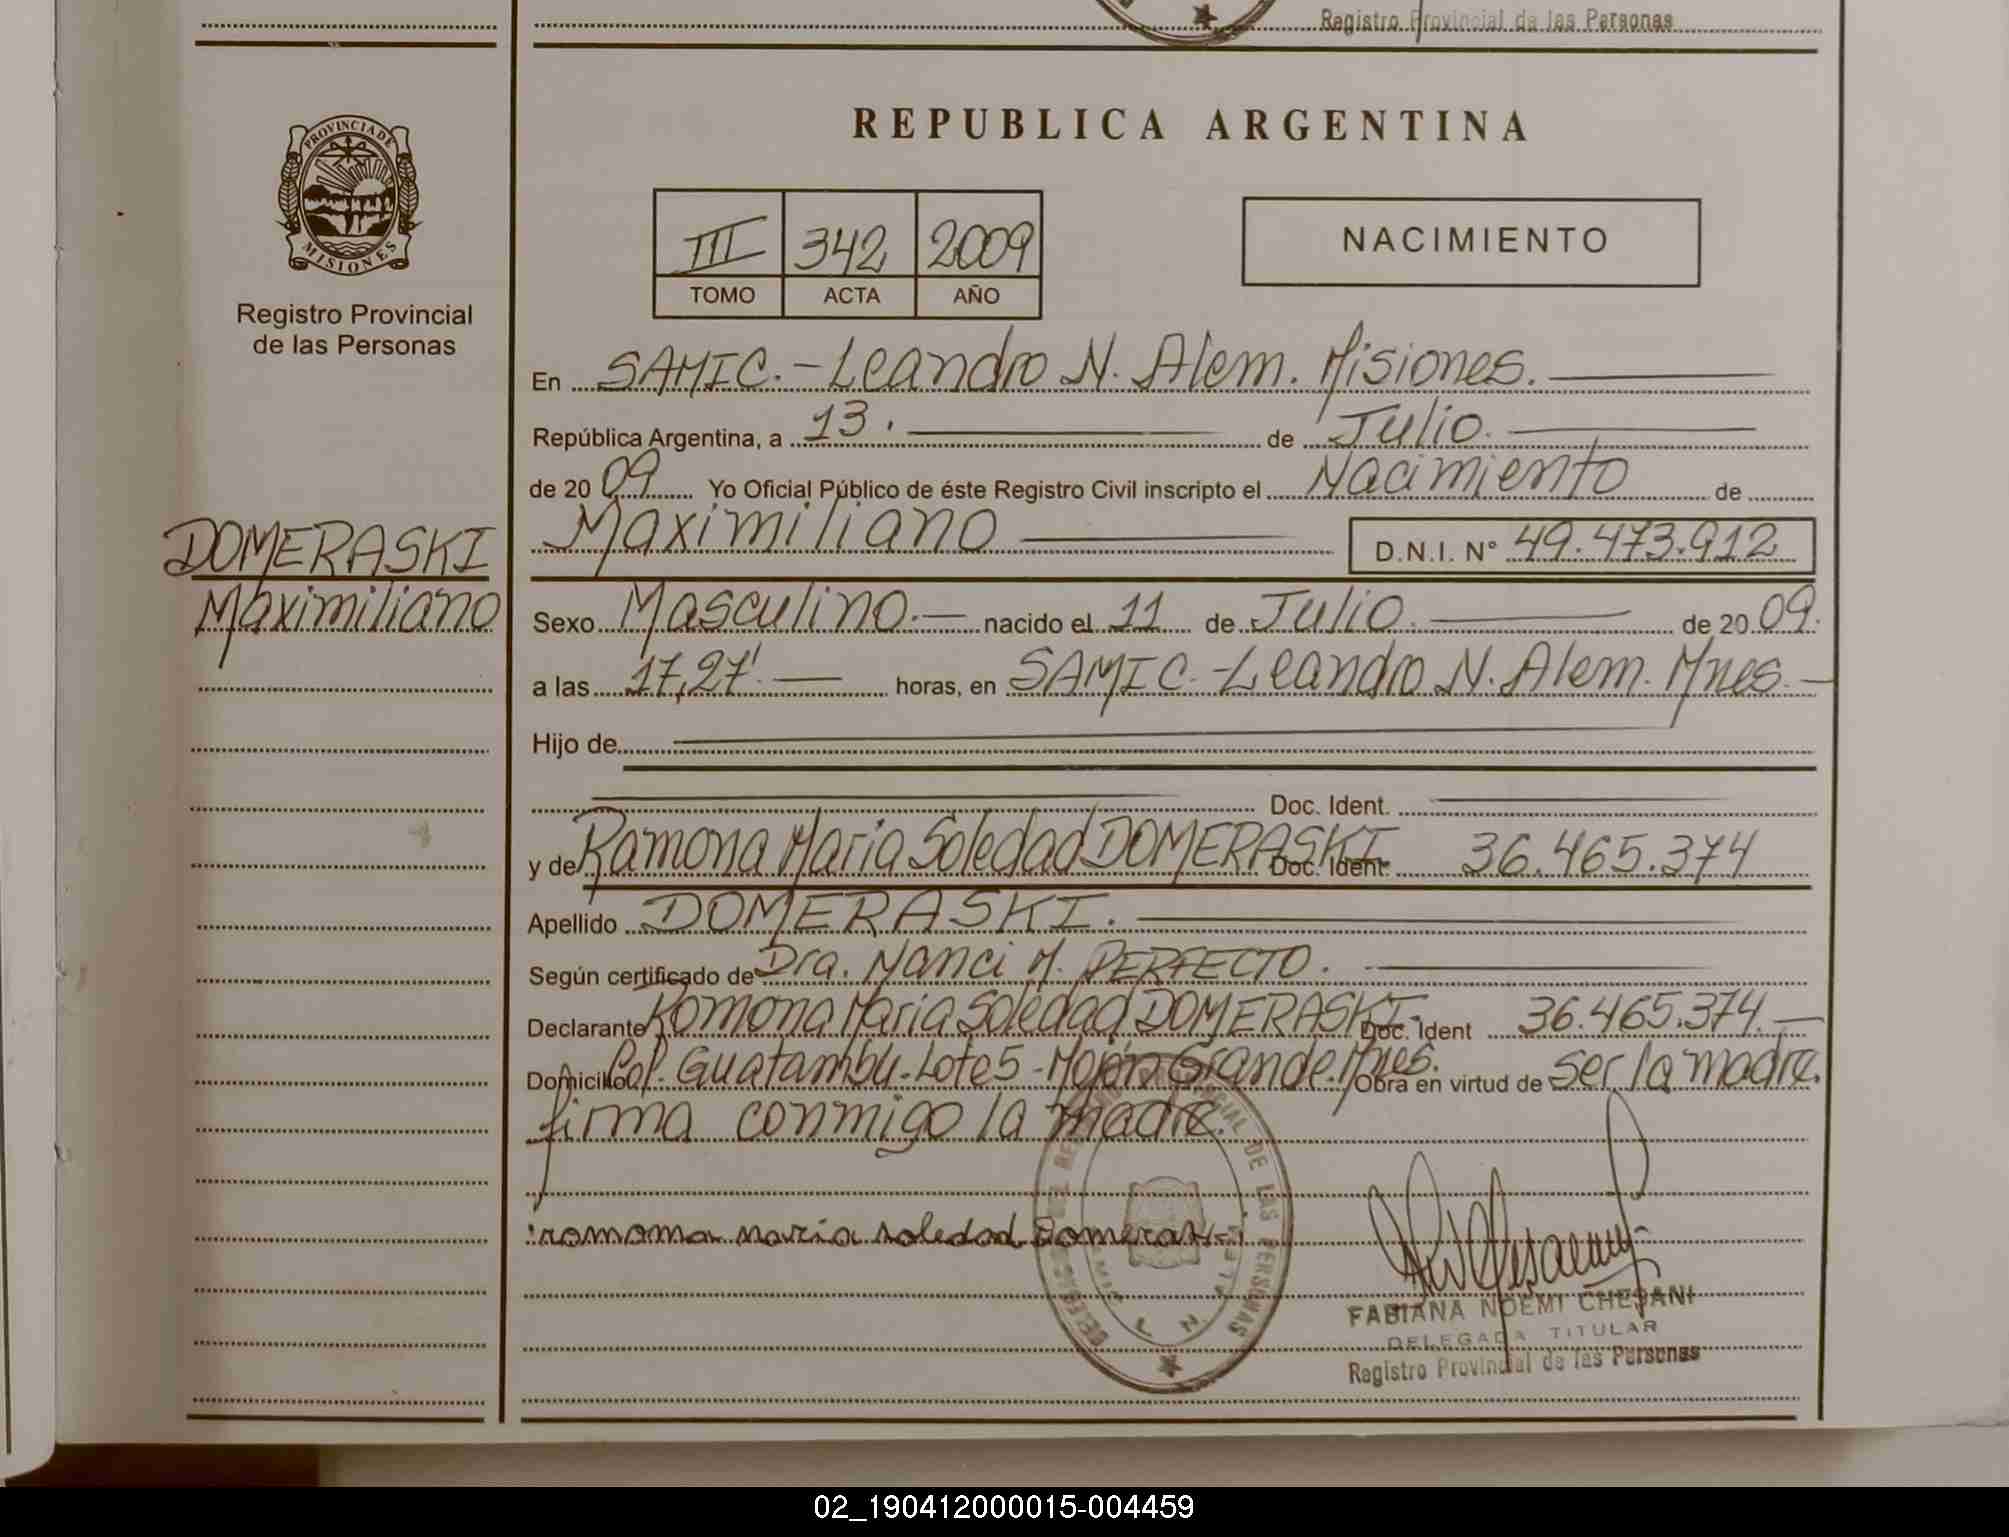 Registro Provincial de las Personas
PROVINCIA DE
MISIONES
Registro Provincial
de las Personas
DOMERASKI
Maximiliano
REPUBLICA ARGENTINA
III 342 2009
TOMO ACTA AÑO
NACIMIENTO
En SAMIC.-Leandro N. Alem. Misiones.
República Argentina, a 13. de Julio.
de 20 09 Yo Oficial Público de éste Registro Civil inscripto el Nacimiento de
Maximiliano D.N.I. N° 49.473.912
Sexo Masculino.- nacido el 11 de Julio. de 20 09.
a las 17,27'. horas, en SAMIC.-Leandro N. Alem. Mnes.-
Hijo de
Doc. Ident.
y de Ramona Maria Soledad DOMERASKI Doc. Ident. 36.465.374
Apellido DOMERASKI.
Según certificado de Dra. Nanci M. PERFECTO.
Declarante Ramona Maria Soledad DOMERASKI. Doc. Ident 36.465.374.-
Domicilio Col. Guatambu-Lote 5-Mojón Grande. Mnes. Obra en virtud de ser la madre.
firma conmigo la madre.
romoma maria soledad Domeraski
DE LAS PERSONAS
L N ALEM
FABIANA NOEMI CHESANI
DELEGADA TITULAR
Registro Provincial de las Personas
02_190412000015-004459